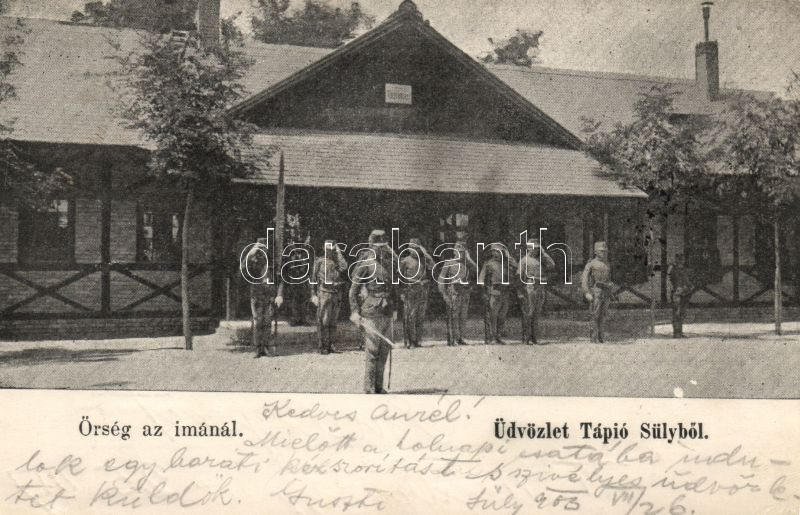 darabanth
Őrség az imánál.
Üdvözlet Tápió Sülyből.
Kedves Aurél!
Mielőtt a holnapi csatába indu-
lok egy baráti kézszorítást és szívélyes üdvözle-
tet küldök. Guszti Süly 903 VII/26.